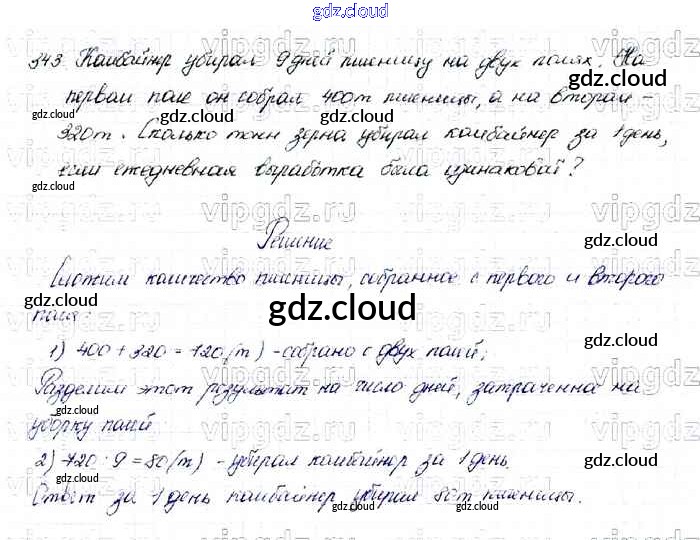 gdz.cloud
343. Комбайнер убирал 9 дней пшеницу на двух полях. На
gdz.cloud
первом поле он собрал 400т пшеницы, а на втором -
gdz.cloud
320т. Сколько тонн зерна убирал комбайнер за 1 день,
gdz.cloud gdz.cloud
если ежедневная выработка была одинаковой?
gdz.cloud
vipgdz.ru vipgdz.ru vipgdz.ru
Решение
gdz.cloud
Сложим количество пшеницы, собранное с первого и второго
gdz.cloud gdz.cloud gdz.cloud
поля:
gdz.cloud
1) 400 + 320 = 720 (т) - собрано с двух полей;
gdz.cloud
Разделим этот результат на число дней, затраченное на
gdz.cloud gdz.cloud
уборку полей
2) 720 : 9 = 80 (т) - убирал комбайнер за 1 день.
gdz.cloud
Ответ за 1 день комбайнер убирал 80т пшеницы.
gdz.cloud gdz.cloud gdz.cloud